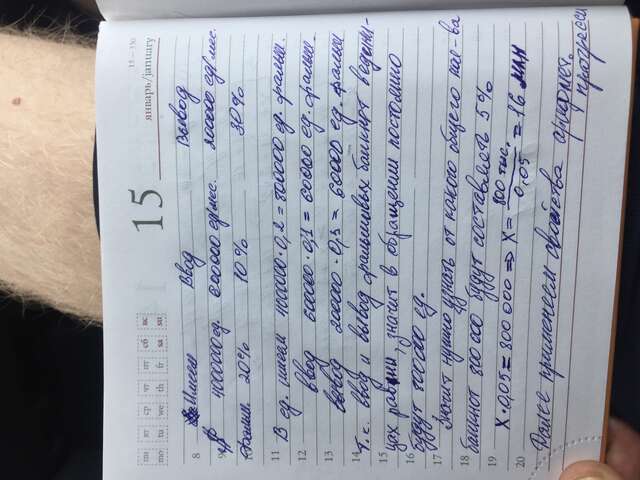 15 – 350
пн вт ср чт пт сб вс
mo tu we th fr sa su
15
январь/january
8 Имеем Ввод Вывод
9 4000000 ед. 600000 ед/мес. 200000 ед/мес.
10 Фальш. 20% 10% 30%
11 В ед. имеем 4000000·0,2=800000 ед. фальш.
12 ввод 600000·0,1=60000 ед. фальш.
13 вывод 200000·0,3=60000 ед. фальш
14 Т.к. ввод и вывод фальшивых банкнот в едини-
15 цах равны, значит в обращении постоянно
16 будут 800000 ед.
17 Значит нужно узнать от какого общего кол-ва
18 банкнот 800 000 будут составлять 5%
19 X·0,05=800 000 ⇒ X= 800 тыс. / 0,05 = 16 млн
20 Далее применяем свойства арифмет.
прогресси